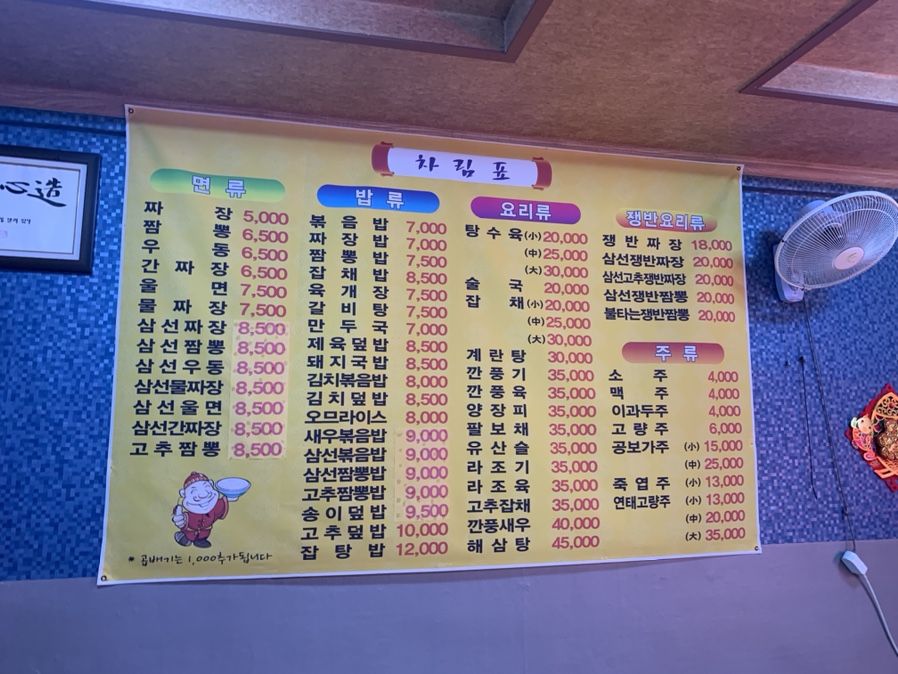 차림표
면류
짜장 5,000
짬뽕 6,500
우동 6,500
간짜장 6,500
울면 7,500
물짜장 7,500
삼선짜장 8,500
삼선짬뽕 8,500
삼선우동 8,500
삼선물짜장 8,500
삼선울면 8,500
삼선간짜장 8,500
고추짬뽕 8,500
* 곱배기는 1,000추가됩니다
밥류
볶음밥 7,000
짜장밥 7,000
짬뽕밥 7,500
잡채밥 8,500
육개장 7,500
갈비탕 7,500
만두국 7,000
제육덮밥 8,500
돼지국밥 8,500
김치볶음밥 8,000
김치덮밥 8,500
오므라이스 8,000
새우볶음밥 9,000
삼선볶음밥 9,000
삼선짬뽕밥 9,000
고추짬뽕밥 9,000
송이덮밥 9,500
고추덮밥 10,000
잡탕밥 12,000
요리류
탕수육(小) 20,000
(中) 25,000
(大) 30,000
술국 20,000
잡채(小) 20,000
(中) 25,000
(大) 30,000
계란탕 30,000
깐풍기 35,000
깐풍육 35,000
양장피 35,000
팔보채 35,000
유산슬 35,000
라조기 35,000
라조육 35,000
고추잡채 35,000
깐풍새우 40,000
해삼탕 45,000
쟁반요리류
쟁반짜장 18,000
삼선쟁반짜장 20,000
삼선고추쟁반짜장 20,000
삼선쟁반짬뽕 20,000
불타는쟁반짬뽕 20,000
주류
소주 4,000
맥주 4,000
이과두주 4,000
고량주 6,000
공보가주 (小) 15,000
(中) 25,000
죽엽주 (小) 13,000
연태고량주 (小) 13,000
(中) 20,000
(大) 35,000
心造